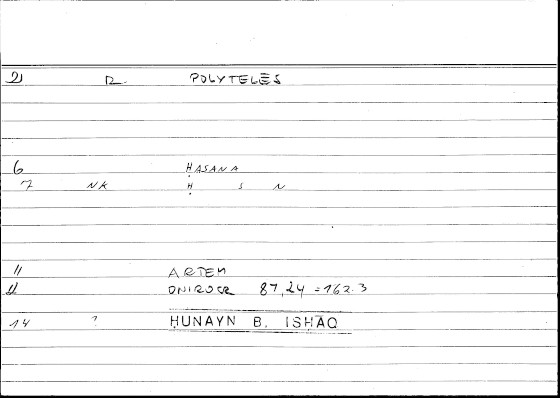 2) R. POLYTELĒS
6 ḤASANA
7 NK Ḥ S N
11 ARTEM
12 ONIROCR 87,24 = 162.3
14 ? HUNAYN B. ISHAQ